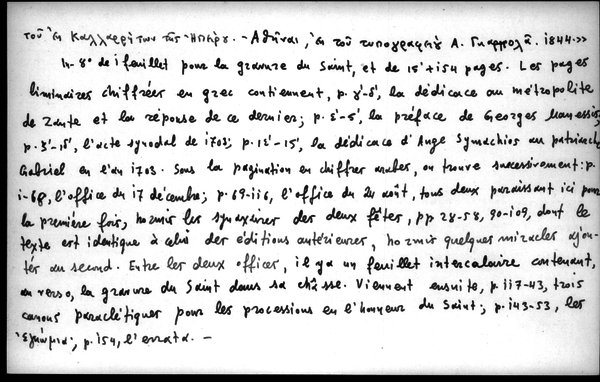 τοῦ ἐκ Καλλαρρίτων τῆς Ἠπείρου. - Ἀθῆναι, ἐκ τοῦ τυπογραφείου Α. Γκαρπολᾶ. 1844.»
In-8° de 1 feuillet pour la gravure du Saint, et de 15'+154 pages. Les pages
liminaires chiffrées en grec contiennent, p. γ'-δ', la dédicace au métropolite
de Zante et la réponse de ce dernier; p. ε'-ς', la préface de Georges
p. ιε', l'acte synodal de 1703; p. ιε', la dédicace d'Ange Sumachios au patriarche
Gabriel en l'an 1703. Sous la pagination en chiffres arabes, on trouve successivement: p.
1-68, l'office du 17 décembre; p. 69-116, l'office du 24 août, tous deux paraissant ici pour
la première fois, hormis les synaxaires des deux fêtes, pp 28-58, 90-109, dont le
texte est identique à celui des éditions antérieures, hormis quelques miracles ajou-
tés au second. Entre les deux offices, il y a un feuillet intercalaire contenant,
au verso, la gravure du Saint dans sa châsse. Viennent ensuite, p. 117-43, trois
canons paraclétiques pour les processions en l'honneur du Saint; p. 143-53, les
ἐγκώμια; p. 154, l'errata. -